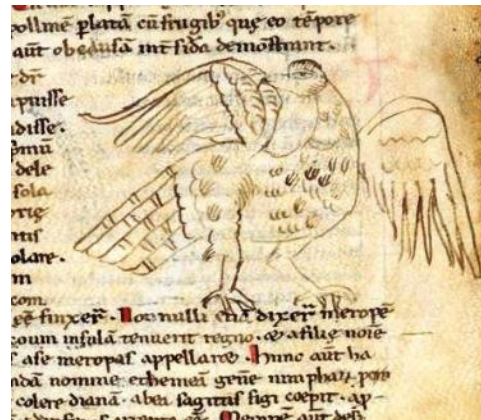 pollinē platā cū frugib; quę eo tēpore
aūt ob eā causā int sida demonstrant.
dr̄
puisse
disse.
omū
dele
sola
rię
ntis
olare.
m
com
gē finxer̄. Nonnulli etiā dixer̄ meropē
coum insulā tenuerit regno. & a filię noīe
s a se meropas appellare. Hunc aūt ha
ndā nomine ethemeā genē nimphaꝝ
colere dianā. abei sagittis figi coepit. ap-